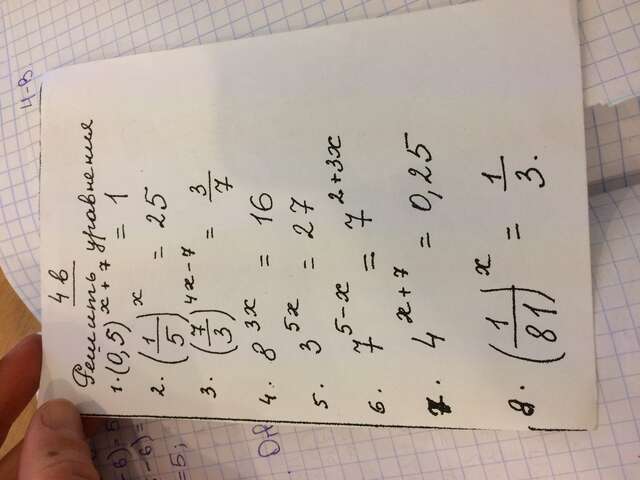 4 в
Решить уравнения
1. (0,5)^{x+7} = 1
2. (1/5)^x = 25
3. (7/3)^{4x-7} = 3/7
4. 8^{3x} = 16
5. 3^{5x} = 27
6. 7^{5-x} = 7^{2+3x}
7. 4^{x+7} = 0,25
8. (1/81)^x = 1/3.
4-в